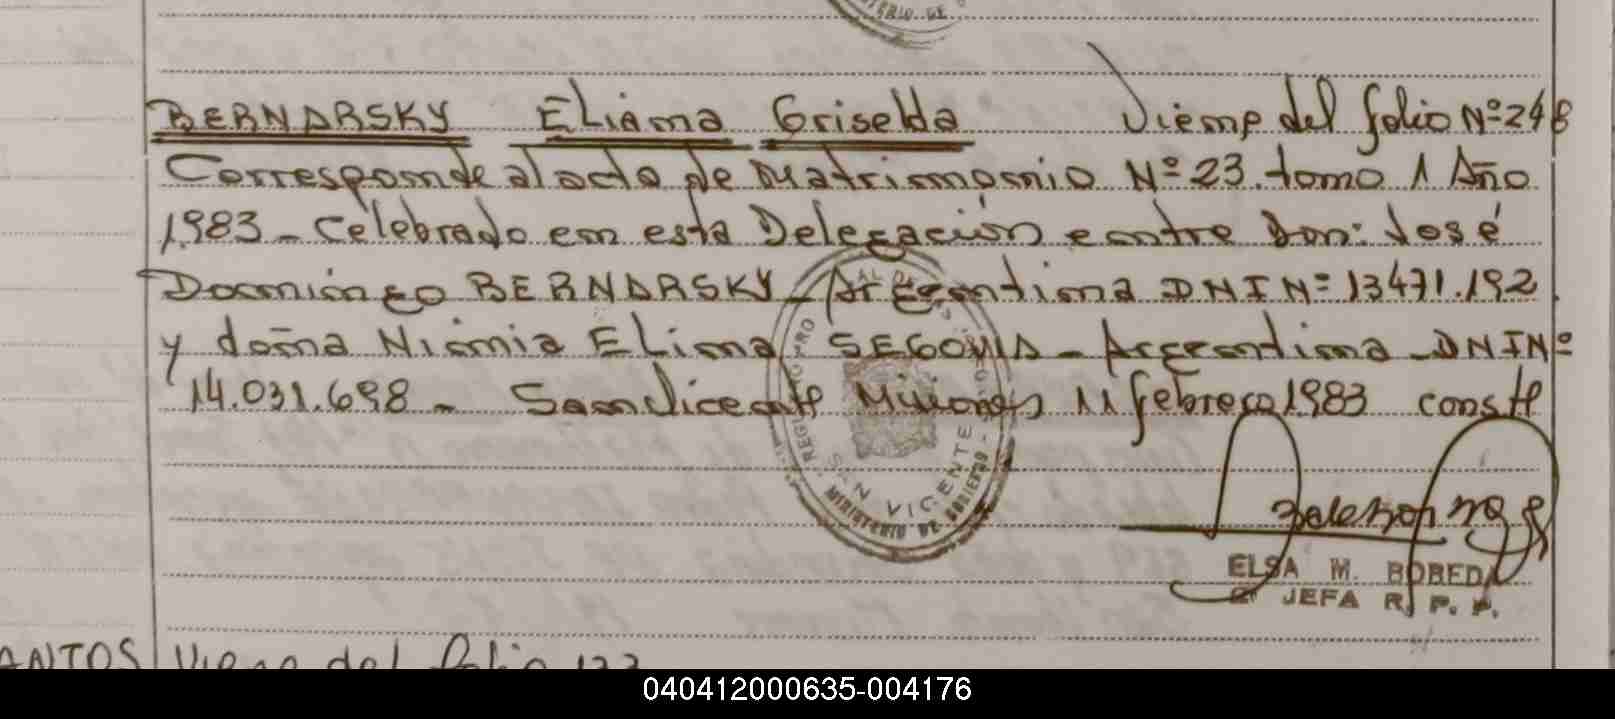 BERNARSKY Eliana Griselda Viene del folio Nº 248
Corresponde al acta de Matrimonio Nº 23. tomo 1 Año
1983 - Celebrado en esta Delegación entre Don: José
Domingo BERNARSKY - Argentina DNI Nº 13471.192
y doña Nimia Elina SEGOVIA - Argentina - DNI Nº
14.031.698 - San Vicente Misiones 11 febrero 1983 conste
SAN VICENTE
MINISTERIO DE GOBIERNO
ELSA M. BOBEDA
JEFA R. P. P.
ANTOS Viene del folio 133
040412000635-004176